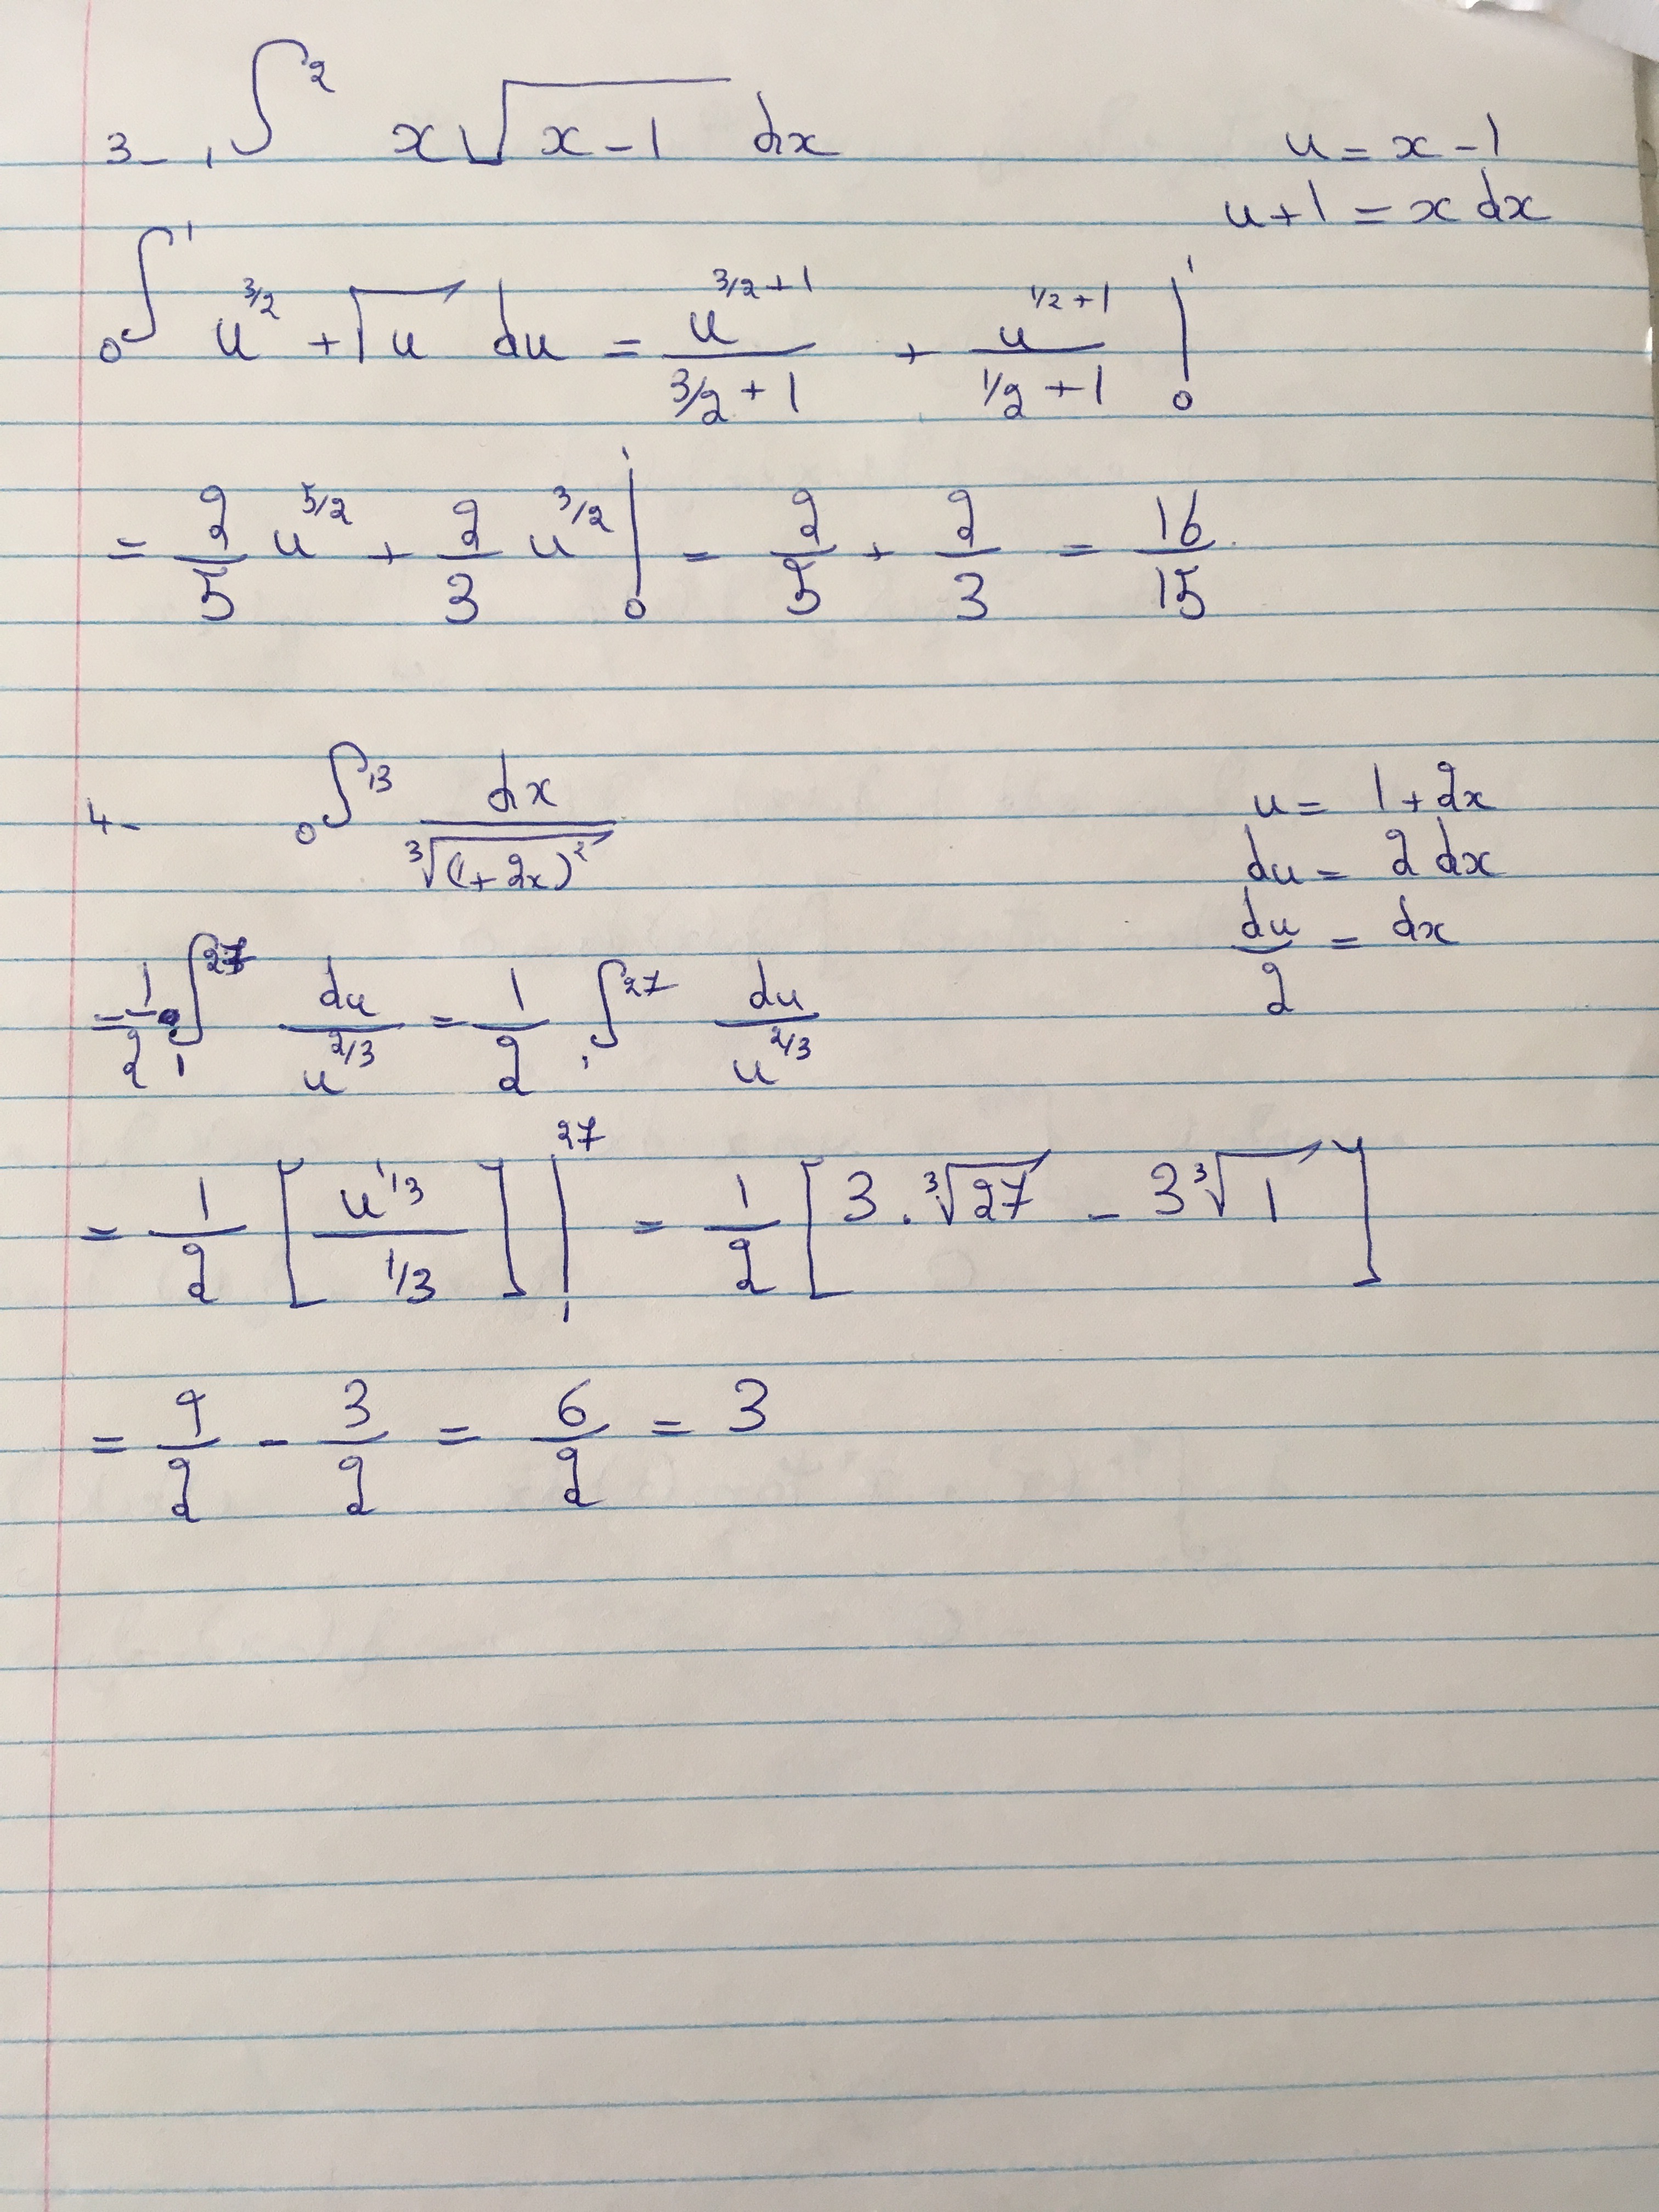 3- ₁∫² x√(x-1) dx    u = x-1
u+1 = x dx
₀∫¹ u^(3/2) + √u du = u^(3/2+1)/(3/2+1) + u^(1/2+1)/(1/2+1) |₀¹
= 2/5 u^(5/2) + 2/3 u^(3/2) |₀¹ = 2/5 + 2/3 = 16/15
4- ₀∫¹³ dx/∛((1+2x)²)    u = 1+2x
du = 2 dx
du/2 = dx
= 1/2 ₁∫²⁷ du/u^(2/3) = 1/2 ₁∫²⁷ du/u^(2/3)
= 1/2 [u^(1/3)/(1/3)] |₁²⁷ = 1/2 [3.∛27 - 3∛1]
= 9/2 - 3/2 = 6/2 = 3